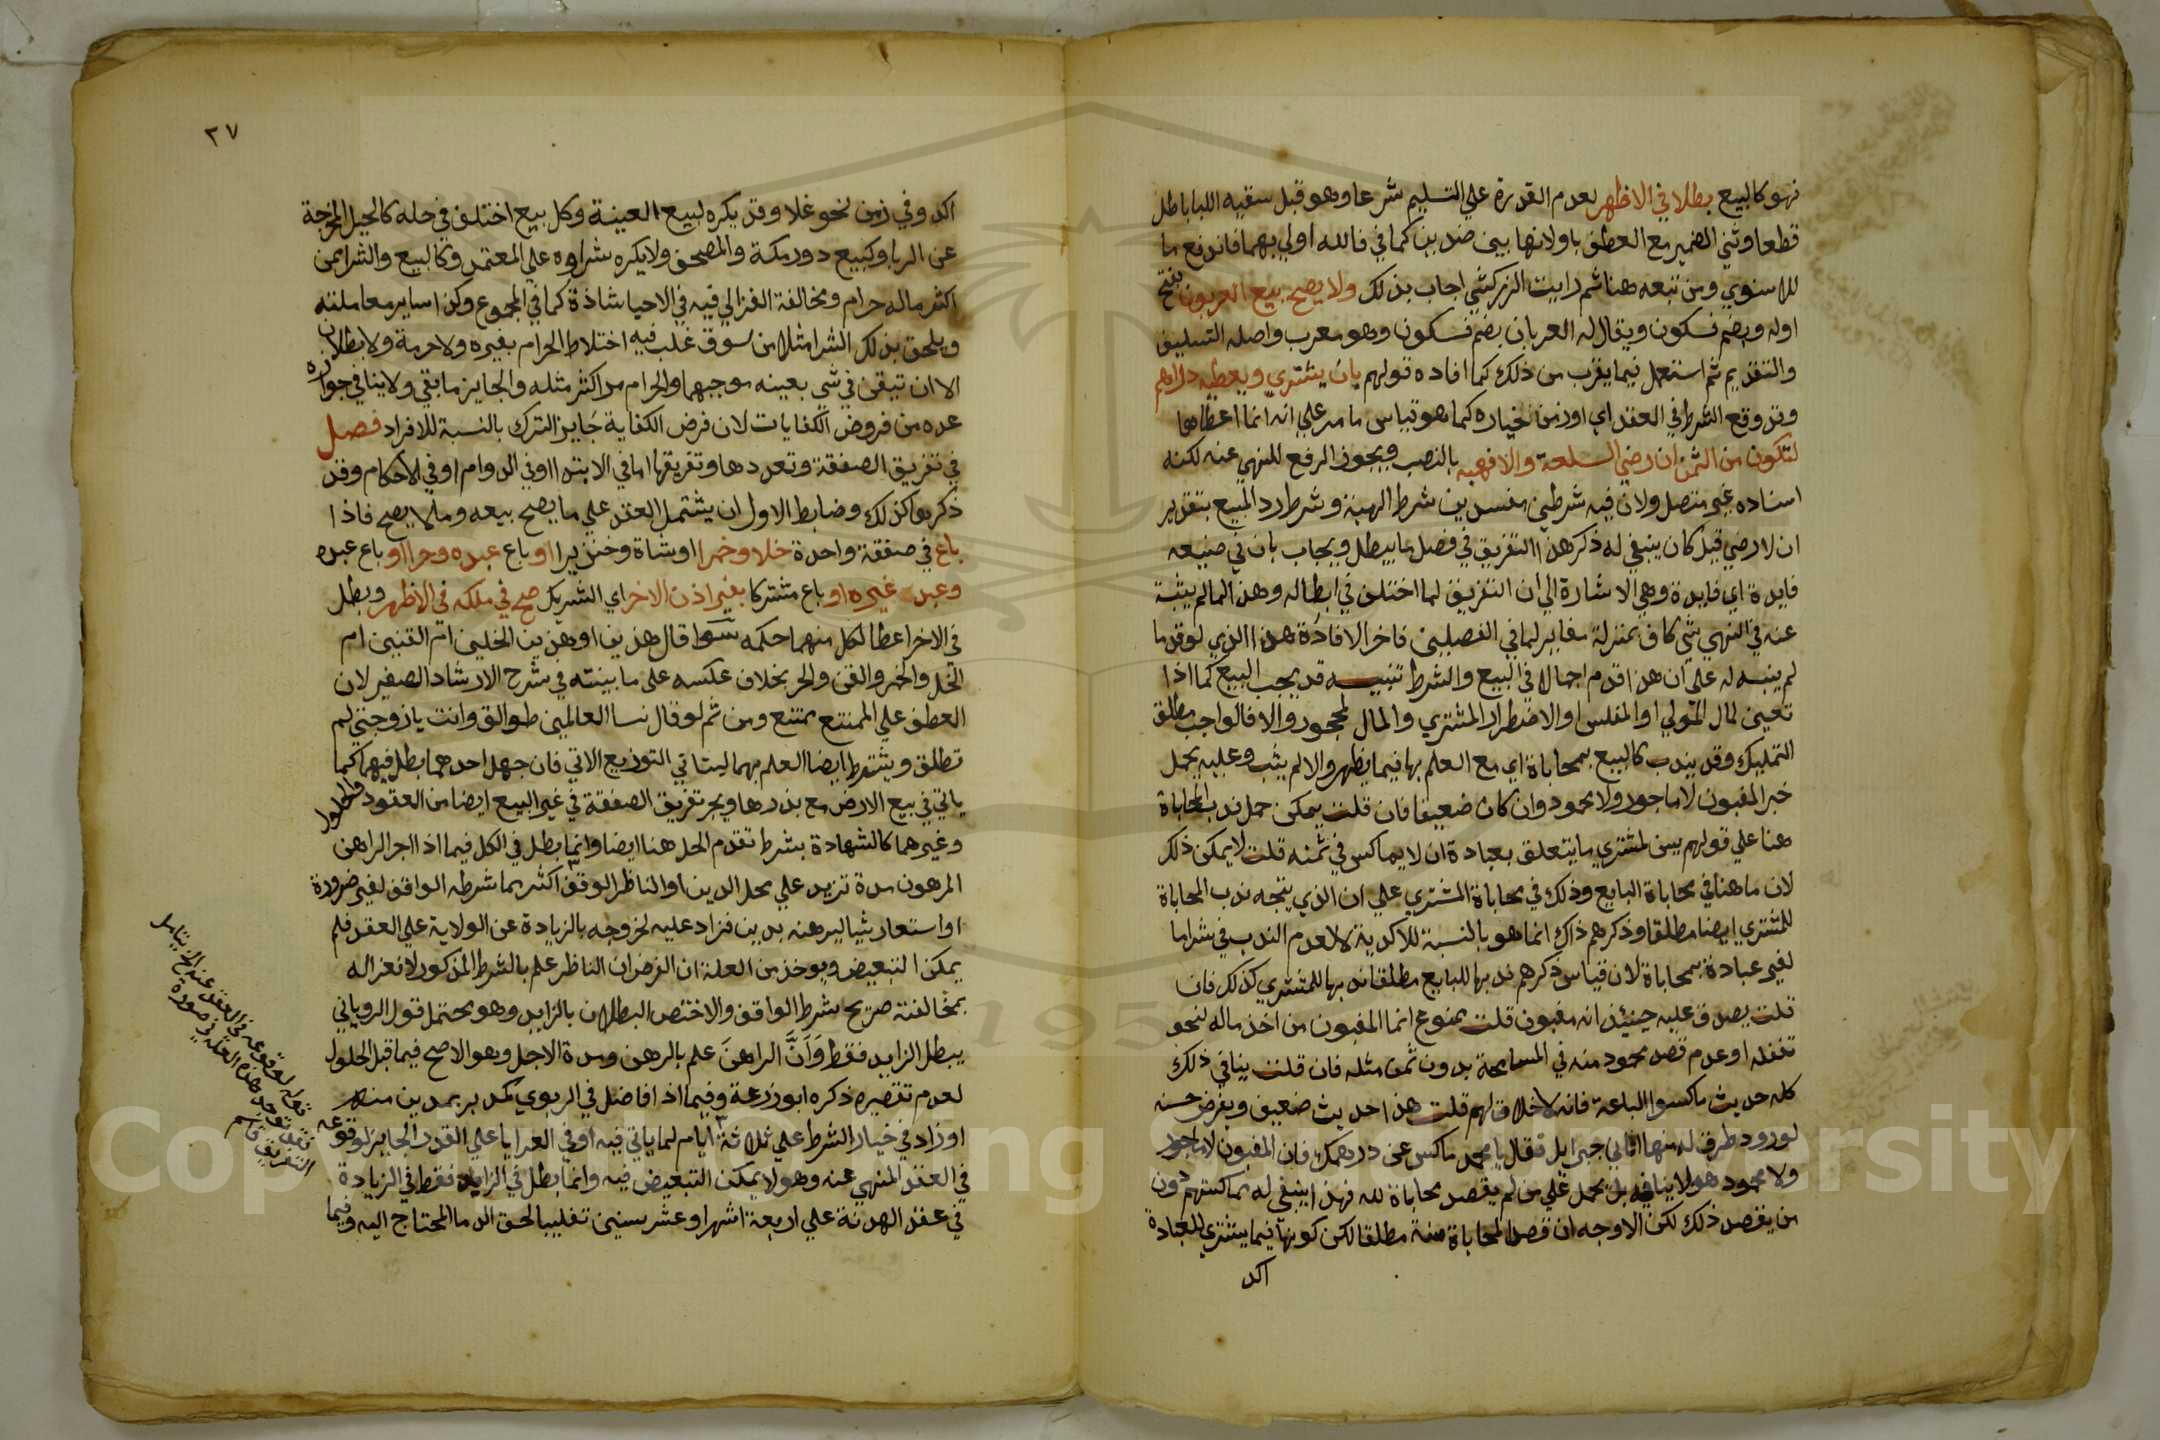 فهو كالبيع بطلا في الاظهر لعدم القدرة علي التسليم شرعا وهو قبل سقيه اللبا باطل
قطعا وثني الضمير مع العطف باو لانها بين ضدين كما في فالله اولي بهما فاندفع ما
للاسنوي ومن تبعه هنا ثم رايت الزركشي اجاب بذلك ولا يصح بيع العربون بفتح
اوله وبضم فسكون ويقال له العربان بضم فسكون وهو معرب واصله التسليف
والتقديم ثم استعمل فيما يقرب من ذلك كما افاده قولهم بان يشتري ويعطيه دراهم
وقد وقع الشرط في العقد اي او زمن خياره كما هو قياس ما مر علي انه انما اعطاها
لتكون من الثمن ان رضي السلعة والا فهبه بالنصب ويجوز الرفع للنهي عنه لكنه
اسناده غير متصل ولان فيه شرطين مفسدين شرط الهبة وشرط رد المبيع بتقدير
ان لا رضي قيل كان ينبغي له ذكر هذا التفريق في فصل ما يبطل ويجاب بان في صنيعه
فايدة اي فايدة وهي الاشارة الي ان التفريق لما اختلف في ابطاله وهذا لما لم يثبت
عنه في النهي شي كاف بمنزلة مغاير لما في الفصلين فاخر الافادة هذا الذي لو قدما
لم ينبه له علي ان هذا قدم اجمالا في البيع والشرط تنبيه قد يجب البيع كما اذا
تعين لمال المولي او المفلس او لاضطرار المشتري والمال لمحجور والا فالواجب مطلق
التمليك وقد يندب كالبيع بمحاباة اي مع العلم بها فيما يظهر والا لم يثب وعليه يحمل
خبر المغبون لا ماجور ولا محمود وان كان ضعيفا فان قلت يمكن حمل ندب المحاباة
هنا علي قولهم يسن لمشتري ما يتعلق بعبادة ان لا يماكس في ثمنه قلت لا يمكن ذلك
لان ما هنا في محاباة البايع وذلك في محاباة المشتري علي ان الذي يتجه ندب المحاباة
للمشتري ايضا مطلقا وذكرهم ذاك انما هو بالنسبة للاكدية لا لعدم الندب في شرا ما
لغير عبادة بمحاباة لان قياس ذكرهم ندبها للبايع مطلقا ندبها للمشتري كذلك فان
قلت يصدق عليه حينئذ انه مغبون قلت ممنوع انما المغبون من اخذ ماله لنحو
تغفله او عدم قصد محمود منه في المسامحة بدون ثمن مثله فان قلت ينافي ذلك
كله حديث ماكسوا الباعة فانه لا خلاق لهم قلت هذا حديث ضعيف وبفرض حسنه
لورود طرق له منها اتاني جبرايل فقال يا محمد ماكس عن درهمك فان المغبون لا ماجور
ولا محمود هو لا ينافيه بل يحمل علي من لم يقصد محاباة لله فهذا ينبغي له مماكستهم دون
من يقصد ذلك لكن الاوجه ان قصد المحاباة سنة مطلقا لكن كونها فيما يشتري للعبادة
اكد
٢٧
اكد وفي زمن نحو غلا وقد يكره لبيع العينة وكل بيع اختلف في حله كالحيل المخرجة
عن الربا وكبيع دور مكة والمصحف ولا يكره شراوه علي المعتمد وكالبيع والشرا ممن
اكثر ماله حرام ومخالفة الغزالي فيه في الاحيا شاذة كما في المجموع وكذا ساير معاملته
ويلحق بذلك الشرا مثلا من سوق غلب فيه اختلاط الحرام بغيره ولا حرمة ولا بطلان
الا ان تيقن في شي بعينه موجبهما والحرام مر اكثر مثله والجايز ما بقي ولا ينافي جوازه
عده من فروض الكفايات لان فرض الكفاية جايز الترك بالنسبة للافراد فصل
في تفريق الصفقة وتعددها وتفريقها اما في الابتدا او في الدوام او في الاحكام وقد
ذكرها كذلك وضابط الاول ان يشتمل العقد علي ما يصح بيعه وما لا يصح فاذا
باع في صفقة واحدة خلا وخمرا او شاة وخنزيرا او باع عبده وحرا او باع عبده
وعبد غيره او باع مشتركا بغير اذن الاخر اي الشريك صح في ملكه في الاظهر وبطل
في الاخر اعطا لكل منهما حكمه سوا قال هذين او هذين الخلين ام القنين ام
الخل والخمر والقن والحر بخلاف عكسه علي ما بينته في شرح الارشاد الصغير لان
العطف علي الممتنع ممتنع ومن ثم لو قال نسا العالمين طوالق وانت يا زوجتي لم
تطلق ويشترط ايضا العلم بهما ليتاتي التوزيع الاتي فان جهل احدهما بطل فيهما كما
ياتي في بيع الارض مع بذرها ويجر تفريق الصفقة في غير البيع ايضا من العقود والحلول
وغيرهما كالشهادة بشرط تقدم الحل هنا ايضا وانما بطل في الكل فيما اذا اجر الراهن
المرهون مدة تزيد علي محل الدين او الناظر الوقف اكثر مما شرطه الواقف لغير ضرورة
او استعار شيا ليرهنه بدين فزاد عليه لخروجه بالزيادة عن الولاية علي العقد فلم
يمكن التبعيض ويوخذ من العلة ان الفرض ان الناظر علم بالشرط المذكور لانعزاله
بمخالفته صريح شرط الواقف والا اختص البطلان بالزايد وهو محتمل قول الروياني
يبطل الزايد فقط وان الراهن علم بالرهن ومدة الاجل وهو الاصح فيما قبل الحلول
لعدم تقصيره ذكره ابو زرعة وفيما اذا فاضل في الربوي كمد بر بمدين منه
او زاد في خيار الشرط علي ثلاثة ايام لما ياتي فيه او في العرايا علي القدر الجايز لوقوعه
في العقد المنهي عنه وهو لا يمكن التبعيض فيه وانما بطل في الزايد فقط في الزيادة
في عقد الهدنة علي اربعة اشهر او عشر سنين تغليبا لحقن الدما المحتاج اليه وفيما
قوله لوقوعه في العقد عنه الخ يتامل
Copyright © King Saud University
195